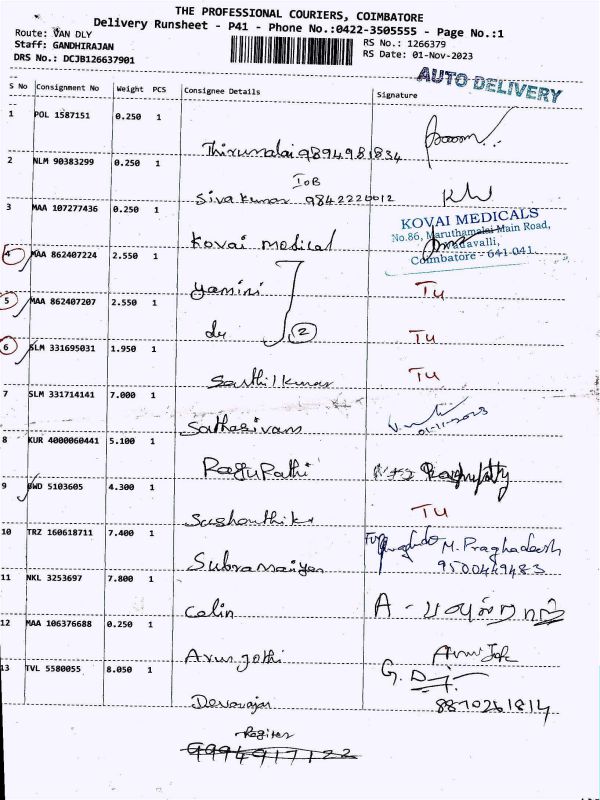 THE PROFESSIONAL COURIERS, COIMBATORE
Delivery Runsheet - P41 - Phone No.:0422-3505555 - Page No.:1
Route: VAN DLY
Staff: GANDHIRAJAN
DRS No.: DCJB126637901
RS No.: 1266379
RS Date: 01-Nov-2023
AUTO DELIVERY
S No Consignment No Weight PCS Consignee Details Signature
1 POL 1587151 0.250 1
Thirumalai 9894981834
2 NLM 90383299 0.250 1
IOB
Sivakumar 9842220012
3 MAA 107277436 0.250 1
Kovai Medical
KOVAI MEDICALS
No.86, Maruthamalai Main Road,
Vadavalli,
Coimbatore - 641 041
4 MAA 862407224 2.550 1
Yamini TU
5 MAA 862407207 2.550 1
do 2 TU
6 SLM 331695031 1.950 1
Senthilkumar TU
7 SLM 331714141 7.000 1
Sathasivam 01-11-2023
8 KUR 4000060441 5.100 1
RaguPathi Raghupathy
9 GWD 5103605 4.300 1
TU
10 TRZ 160618711 7.400 1
Subramaiyan For M. Praghadeesh
9500449483
11 NKL 3253697 7.800 1
Calin A -
12 MAA 106376688 0.250 1
Arun Jothi Arun Jothi
13 TVL 5580055 8.050 1
Devarajan G. D
8870261814
9994917122